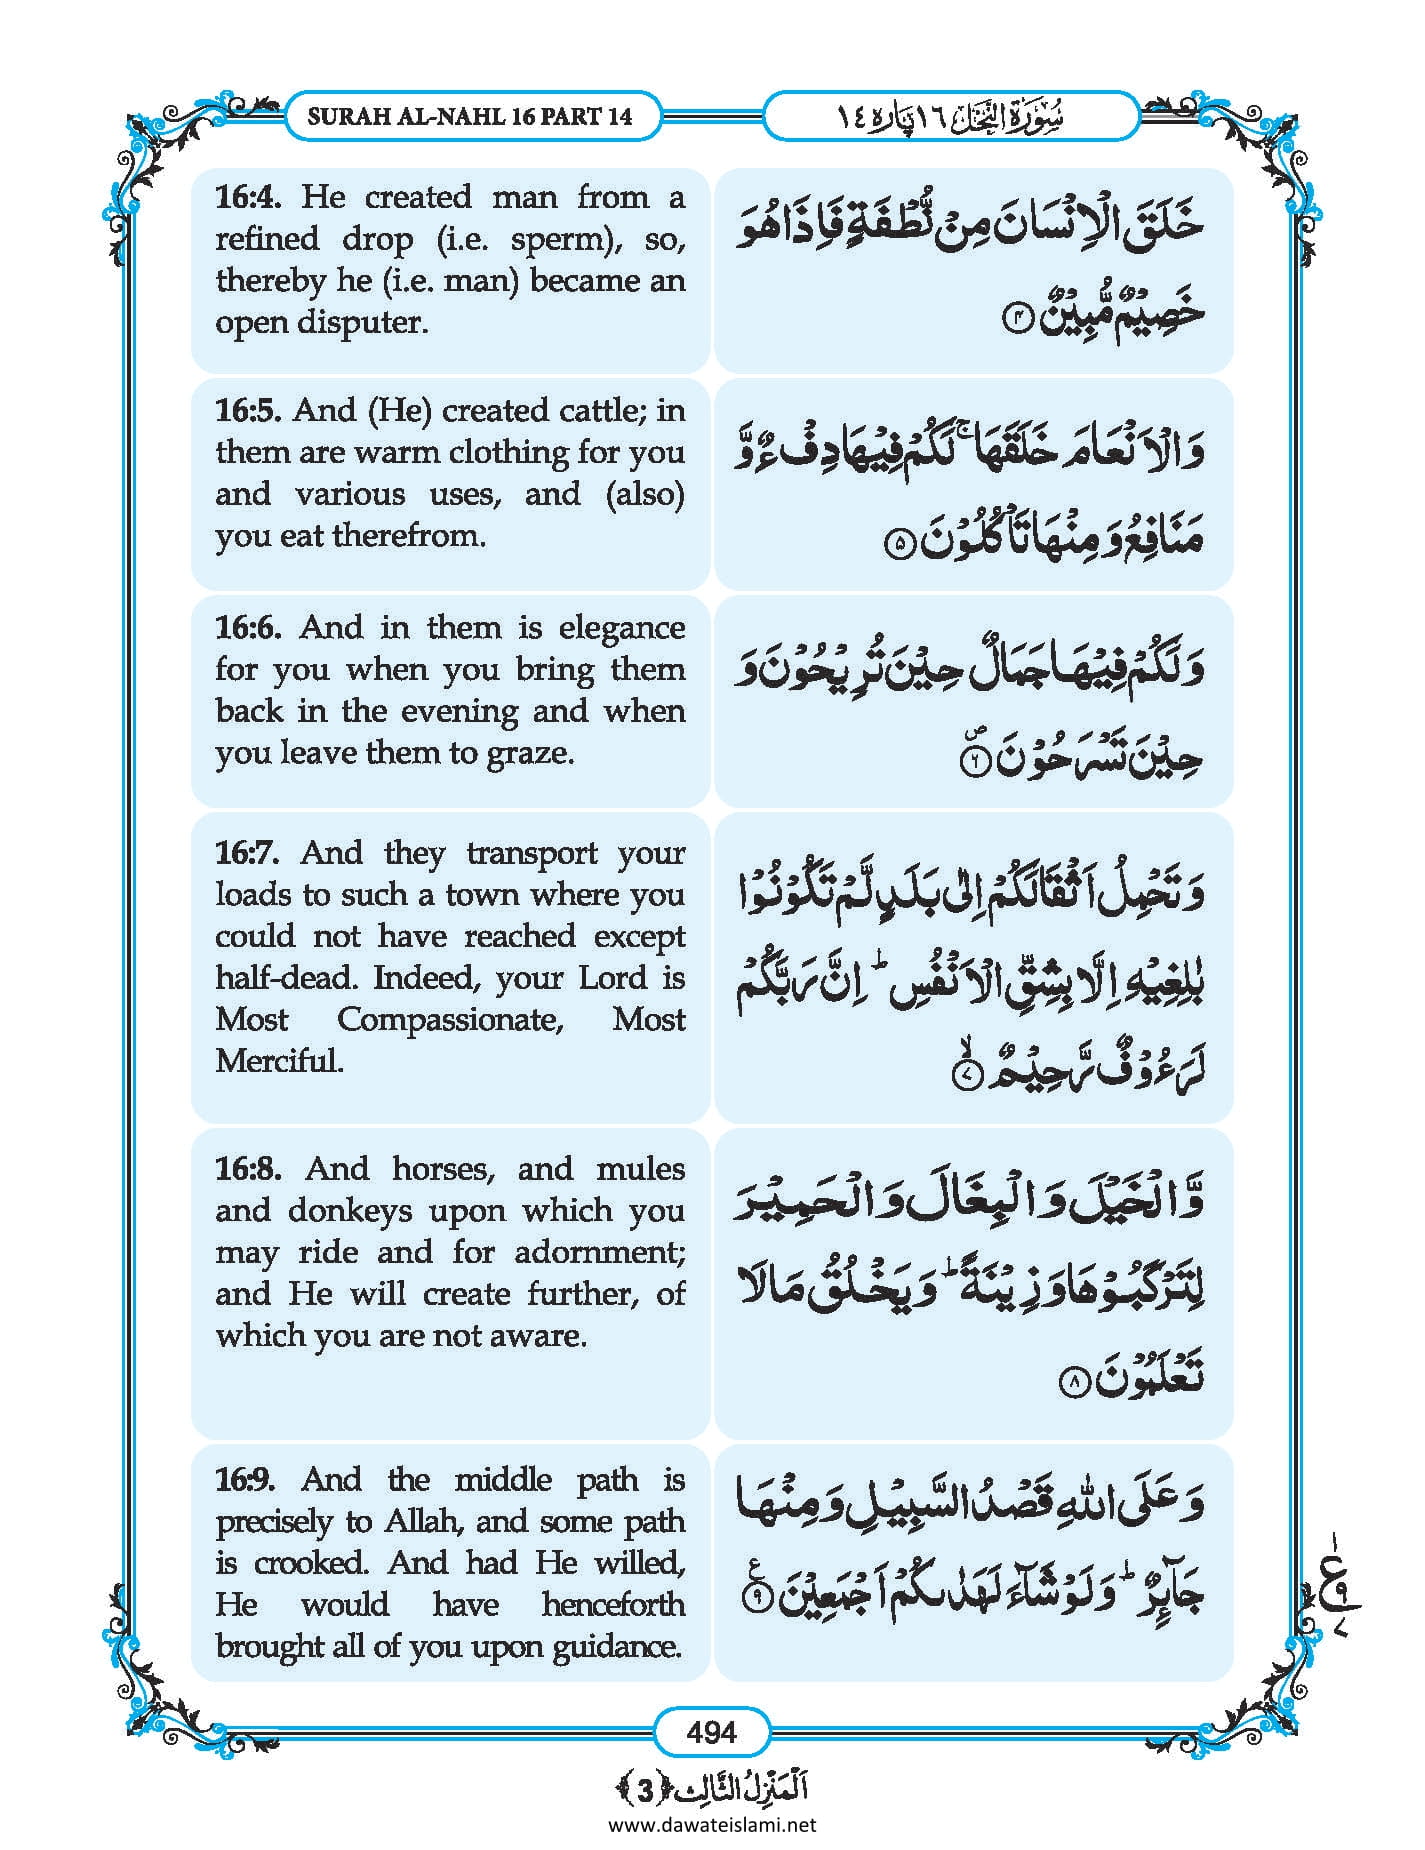 SURAH AL-NAHL 16 PART 14
سُوْرَةُ النَّحْل ١٦ پَارہ ١٤
16:4. He created man from a
refined drop (i.e. sperm), so,
thereby he (i.e. man) became an
open disputer.
خَلَقَ الْاِنْسَانَ مِنْ نُّطْفَةٍ فَاِذَا هُوَ
خَصِيْمٌ مُّبِيْنٌ ۝۴
16:5. And (He) created cattle; in
them are warm clothing for you
and various uses, and (also)
you eat therefrom.
وَالْاَنْعَامَ خَلَقَهَا ۚ لَكُمْ فِيْهَا دِفْءٌ وَّ
مَنَافِعُ وَمِنْهَا تَاْكُلُوْنَ ۝۵
16:6. And in them is elegance
for you when you bring them
back in the evening and when
you leave them to graze.
وَلَكُمْ فِيْهَا جَمَالٌ حِيْنَ تُرِيْحُوْنَ وَ
حِيْنَ تَسْرَحُوْنَ ۝۶ ص
16:7. And they transport your
loads to such a town where you
could not have reached except
half-dead. Indeed, your Lord is
Most Compassionate, Most
Merciful.
وَتَحْمِلُ اَثْقَالَكُمْ اِلٰى بَلَدٍ لَّمْ تَكُوْنُوْا
بٰلِغِيْهِ اِلَّا بِشِقِّ الْاَنْفُسِ ؕ اِنَّ رَبَّكُمْ
لَرَءُوْفٌ رَّحِيْمٌ ۝۷ ۙ
16:8. And horses, and mules
and donkeys upon which you
may ride and for adornment;
and He will create further, of
which you are not aware.
وَّالْخَيْلَ وَالْبِغَالَ وَالْحَمِيْرَ
لِتَرْكَبُوْهَا وَزِيْنَةً ؕ وَيَخْلُقُ مَا لَا
تَعْلَمُوْنَ ۝۸
16:9. And the middle path is
precisely to Allah, and some path
is crooked. And had He willed,
He would have henceforth
brought all of you upon guidance.
وَعَلَى اللّٰهِ قَصْدُ السَّبِيْلِ وَمِنْهَا
جَآئِرٌ ؕ وَلَوْ شَآءَ لَهَدٰىكُمْ اَجْمَعِيْنَ ۝۹ ع
١
ع
٩
٧
494
اَلْمَنْزِلُ الثَّالِث ﴿3﴾
www.dawateislami.net